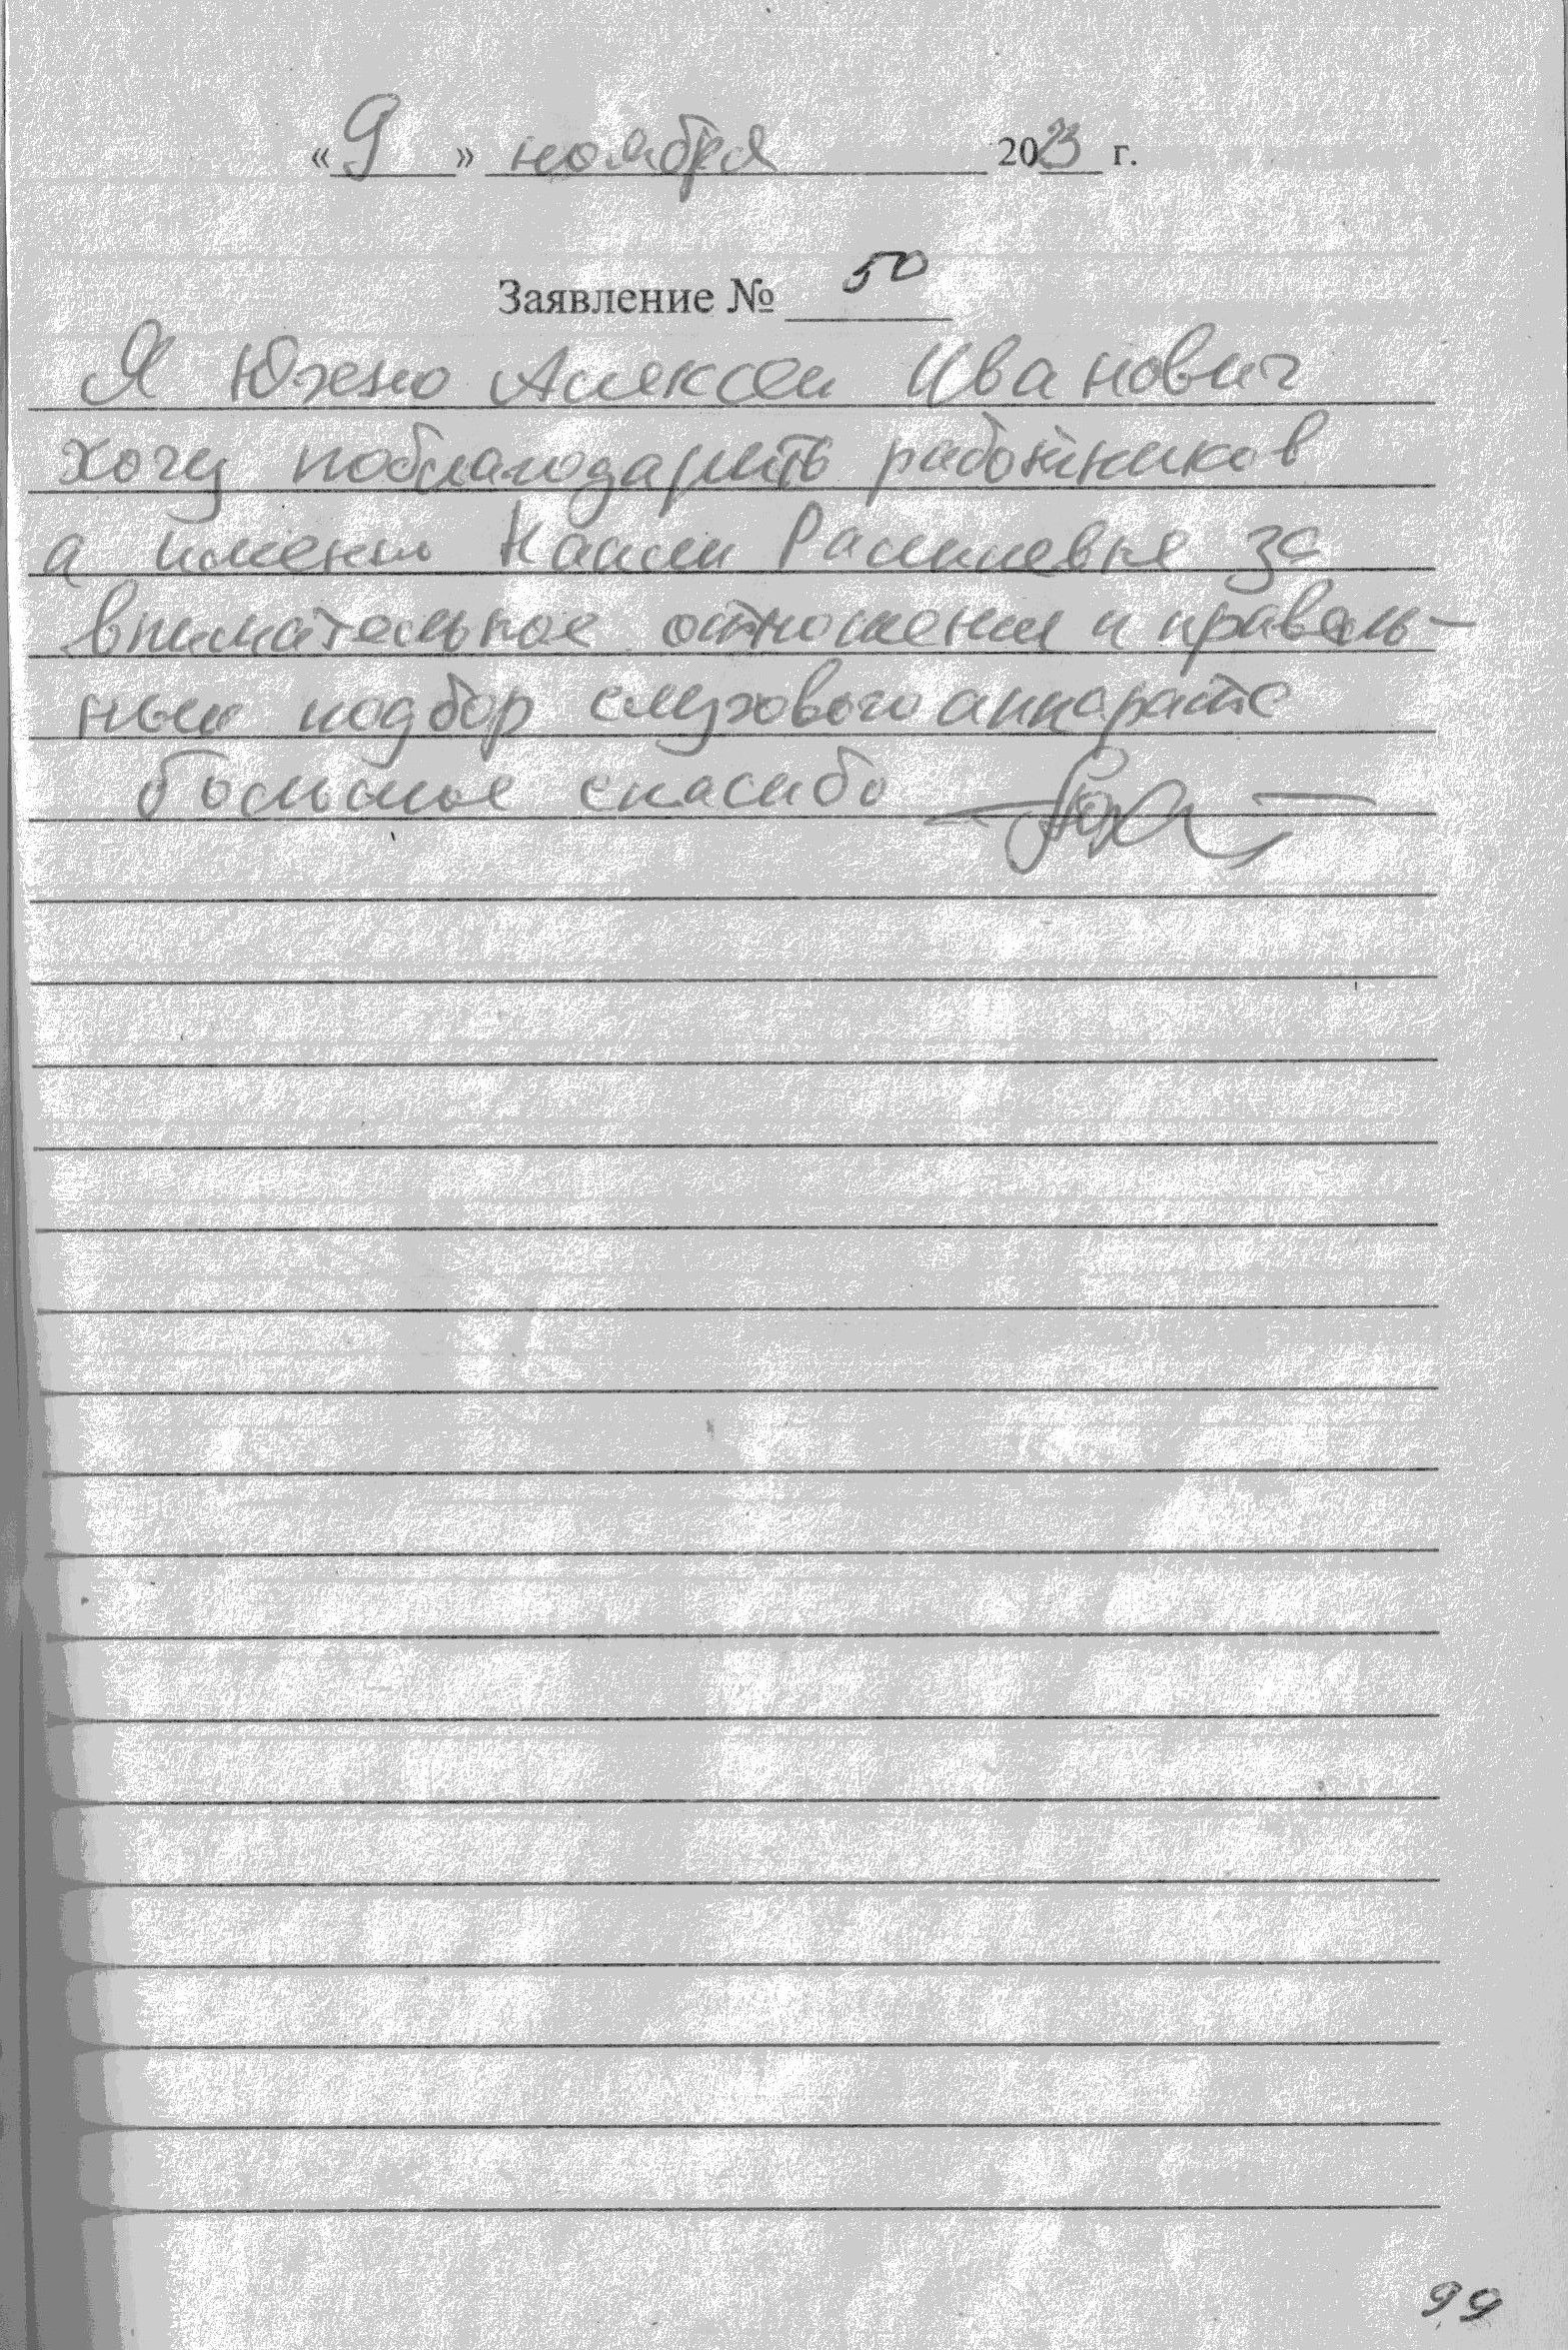 «9» ноября 2023 г.
Заявление № 50
Я Южно Алексей Иванович
хочу поблагодарить работников
а имено Рамилевне за
внимательное отношении и праваль-
ный подбор слухового аппарата
большое спасибо
99